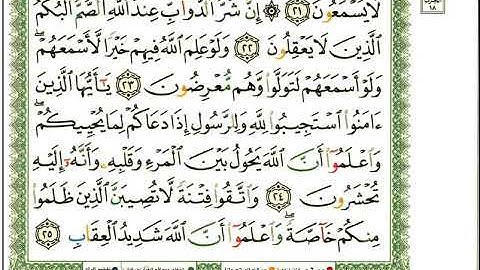 لَا يَسْمَعُونَ ٢١ ۞ إِنَّ شَرَّ الدَّوَابِّ عِندَ اللَّهِ الصُّمُّ الْبُكْمُ
الَّذِينَ لَا يَعْقِلُونَ ٢٢ وَلَوْ عَلِمَ اللَّهُ فِيهِمْ خَيْرًا لَّأَسْمَعَهُمْ ۖ
وَلَوْ أَسْمَعَهُمْ لَتَوَلَّوا وَّهُم مُّعْرِضُونَ ٢٣ يَٰٓأَيُّهَا الَّذِينَ
ءَامَنُوا اسْتَجِيبُوا لِلَّهِ وَلِلرَّسُولِ إِذَا دَعَاكُمْ لِمَا يُحْيِيكُمْ ۖ
وَاعْلَمُوٓا أَنَّ اللَّهَ يَحُولُ بَيْنَ الْمَرْءِ وَقَلْبِهِ وَأَنَّهُۥٓ إِلَيْهِ
تُحْشَرُونَ ٢٤ وَاتَّقُوا فِتْنَةً لَّا تُصِيبَنَّ الَّذِينَ ظَلَمُوا
مِنكُمْ خَآصَّةً ۖ وَاعْلَمُوٓا أَنَّ اللَّهَ شَدِيدُ الْعِقَابِ ٢٥